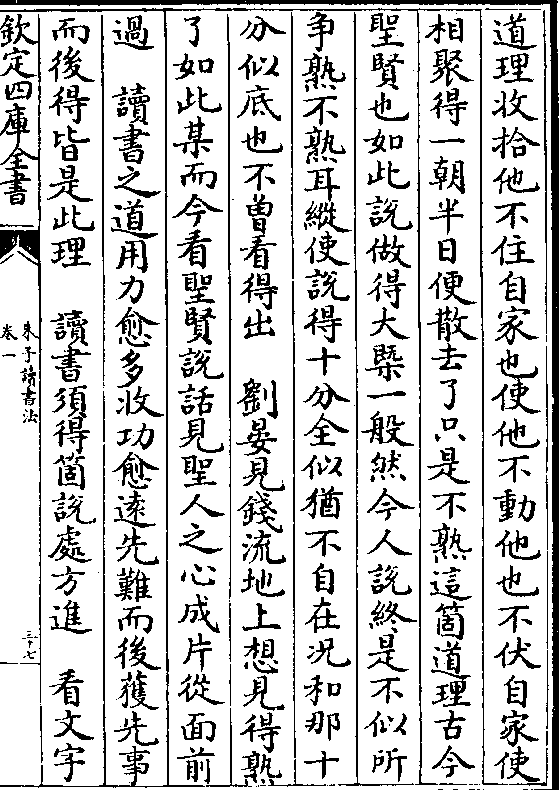 道理收拾他不住自家也使他不動他也不伏自家使
相聚得一朝半日便散去了只是不熟這箇道理古今
聖賢也如此說做得大槩一般然今人說終是不似所
争熟不熟耳縱使說得十分全似猶不自在况和那十
分似底也不曽看得出　劉晏見錢流地上想見得熟
了如此某而今看聖賢說話見聖人之心成片從面前
過　讀書之道用力愈多收功愈逺先難而後獲先事
而後得皆是此理　讀書須得箇說處方進　看文字
欽定四庫全書
朱子讀書法
卷一
三十七